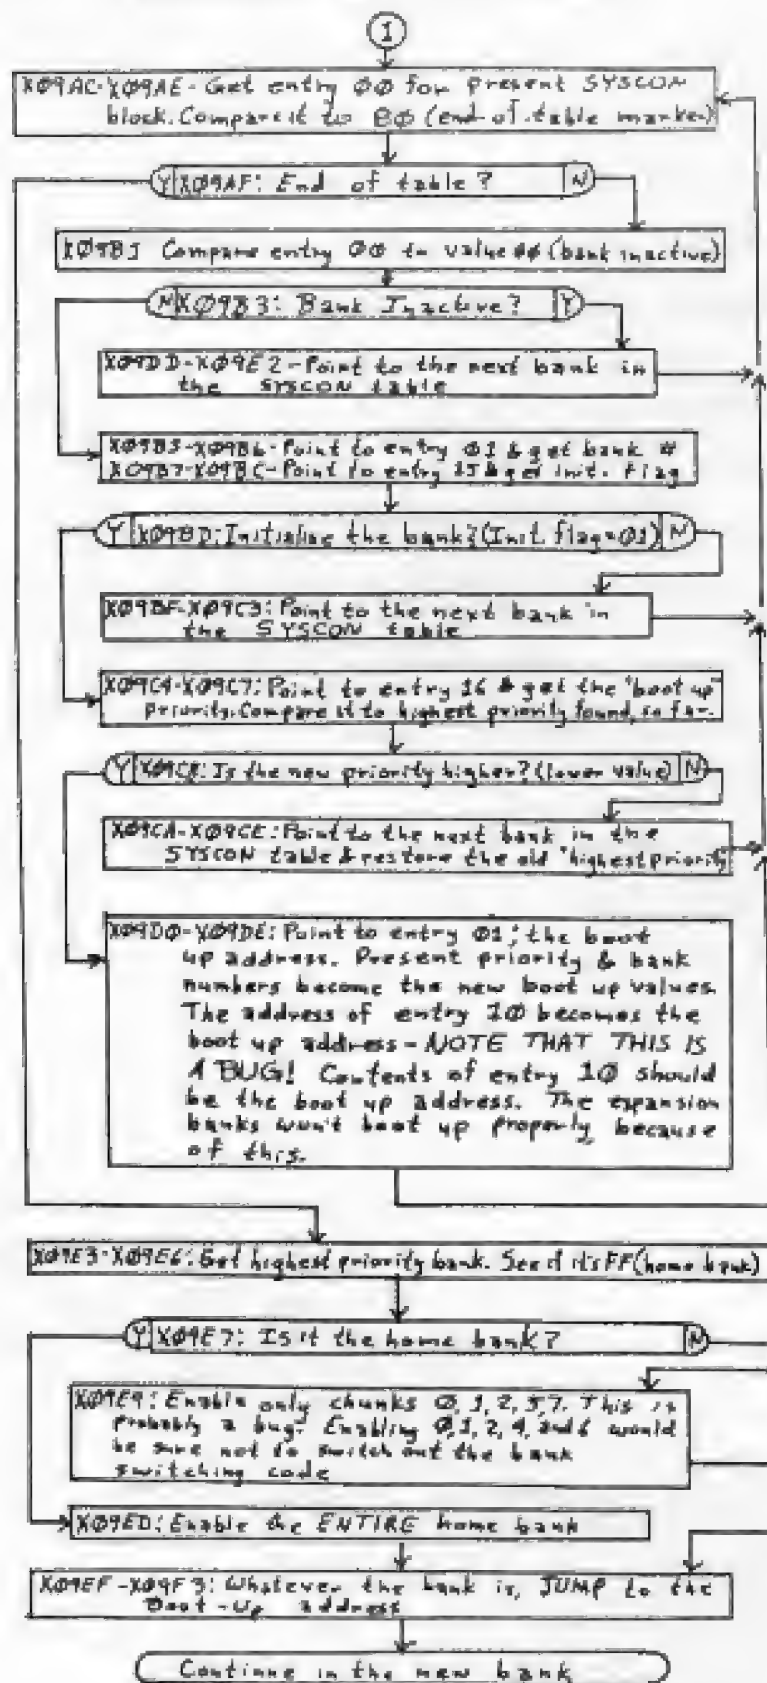 1
XØ9AC-XØ9AE-Get entry ØØ for present SYSCON
block. Compare it to 8Ø (end-of-table marker)
Y XØ9AF: End of table? N
XØ9B1 Compare entry ØØ to value ØØ (bank inactive)
N XØ9B3: Bank Inactive? Y
XØ9DD-XØ9E2-Point to the next bank in
the SYSCON table
XØ9B5-XØ9B6-Point to entry Ø1 & get bank #
XØ9B7-XØ9BC-Point to entry 15 & get init. flag
Y XØ9BD: Initialize the bank? (Init flag=Ø1) N
XØ9BF-XØ9C3: Point to the next bank in
the SYSCON table
XØ9C4-XØ9C7: Point to entry 16 & get the "boot up"
priority. Compare it to highest priority found, so far.
Y XØ9C8: Is the new priority higher? (lower value) N
XØ9CA-XØ9CE: Point to the next bank in the
SYSCON table & restore the old "highest priority"
XØ9DØ-XØ9DE: Point to entry Ø1, the boot
up address. Present priority & bank
numbers become the new boot up values.
The address of entry 1Ø becomes the
boot up address - NOTE THAT THIS IS
A BUG! Contents of entry 1Ø should
be the boot up address. The expansion
banks won't boot up properly because
of this.
XØ9E3-XØ9E6: Get highest priority bank. See if it's FF (home bank)
Y XØ9E7: Is it the home bank? N
XØ9E9: Enable only chunks Ø, 1, 2, 5, 7. This is
probably a bug. Enabling Ø, 1, 2, 4, and 6 would
be sure not to switch out the bank
switching code
XØ9ED: Enable the ENTIRE home bank
XØ9EF-XØ9F3: Whatever the bank is, JUMP to the
Boot-Up address
Continue in the new bank